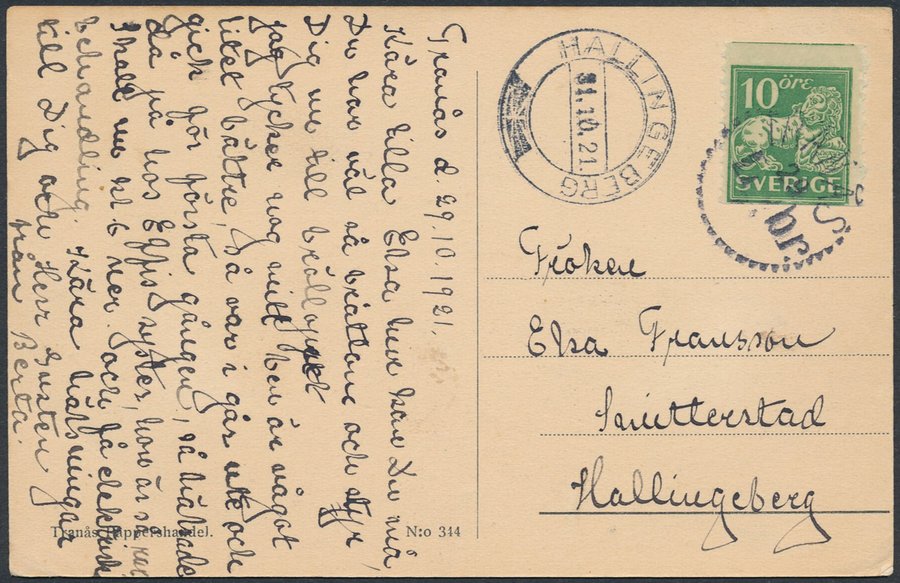 Tranås d. 29.10.1921.
Kära lilla Elsa hur kan Du må,
Du har väl så bråttom och styr
Dig nu till bröllopet
jag tycker nog mitt ben är något
litet bättre, så var i går ute och
gick för första gången, så hälsade
då på hos Elfis syster, hon är s
Skall nu kl 6 ner och få elektrisk
behandling. Kära hälsningar
till Dig och Herr Gusten
från Berta.
HALLINGEBERG
31.10.21.
10 öre
SVERIGE
TRANÅS
Fröken
Elsa Fransson
Smitterstad
Hallingeberg
Tranås Pappershandel.
N:o 344